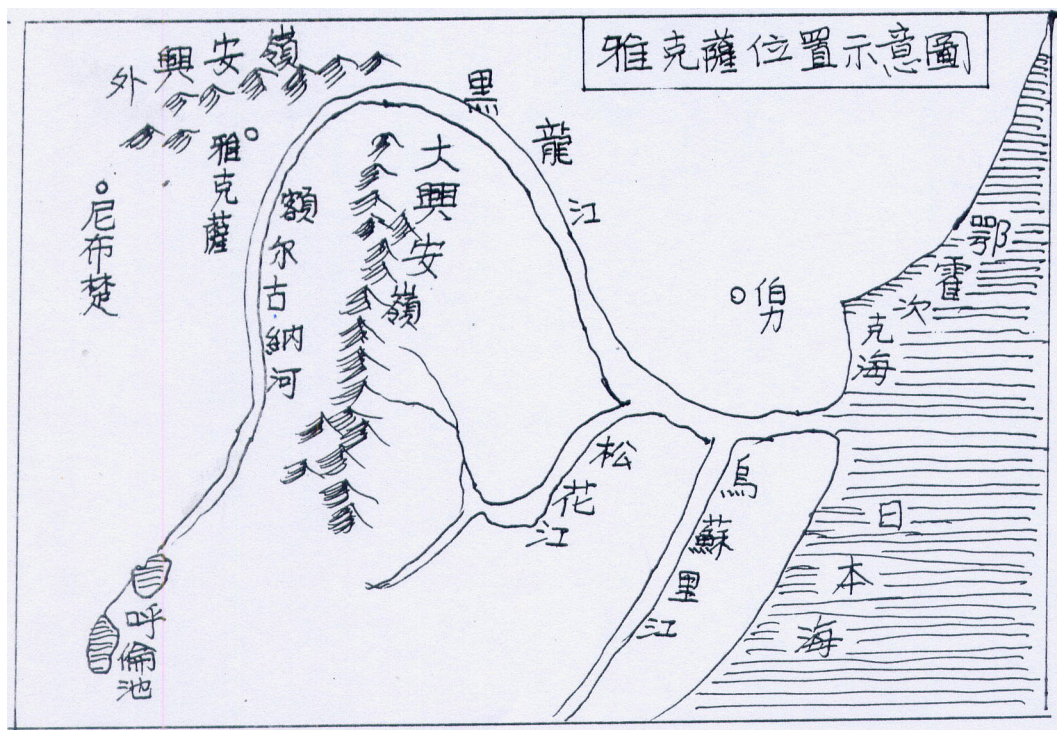 雅克薩位置示意圖
外興安嶺
黑龍江
雅克薩
大興安嶺
額尔古納河
尼布楚
鄂霍次克海
伯力
松花江
烏蘇里江
日本海
呼倫池